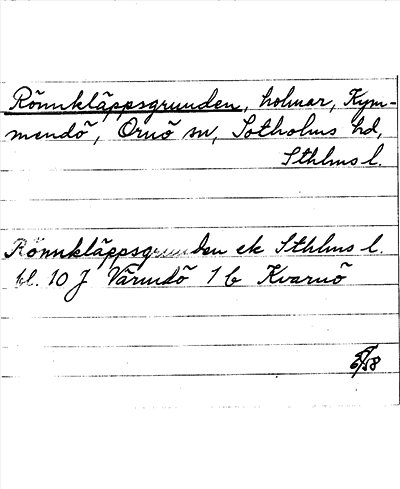 Rönnkläppsgrunden, holmar, Kym-
mendö, Ornö sn, Sotholms hd,
Sthlms l.
Rönnkläppsgrunden ek Sthlms l.
bl. 10 J Värmdö 1 b Kvarnö
58